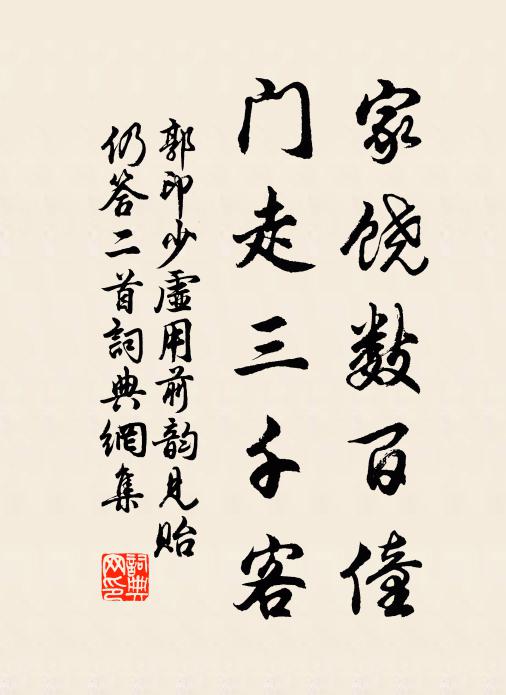 家饶数百僮
门走三千客
郭印少虚用前韵见贻
仍答二首词典網集
詞典
网印